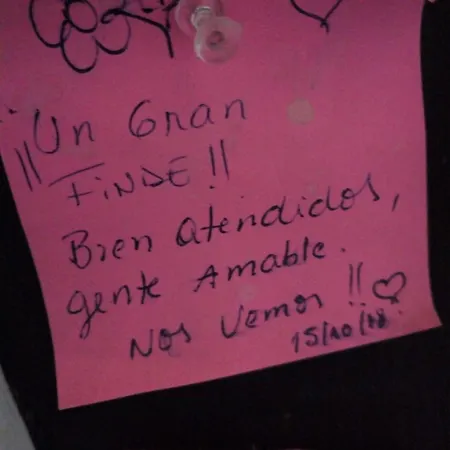 ¡¡Un Gran
FiNDE!!
Bien atendidos,
gente Amable.
Nos Vemos!!
15/10/18